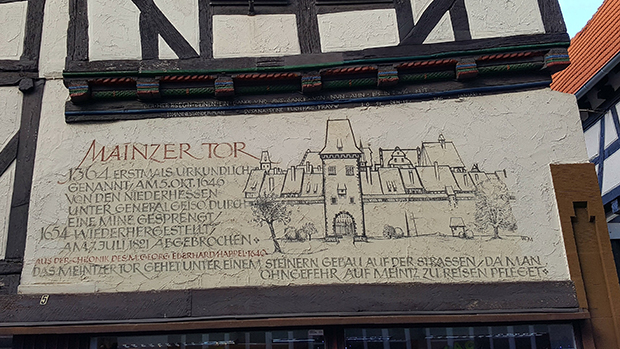 MAINZER TOR
1364 ERSTMALS URKUNDLICH
GENANNT AM 5. OKT. 1646
VON DEN NIEDERHESSEN
UNTER GENERAL GEISO DURCH
EINE MINE GESPRENGT/
1654 WIEDERHERGESTELLT/
AM 7. JULI 1821 ABGEBROCHEN
AUS DER CHRONIK DES M. GEORG EBERHARD HAPPEL 1640
DAS MEINTZER TOR GEHET UNTER EINEM STEINERN GEBAU AUF DER STRASSEN / DA MAN
OHNGEFEHR AUF MEINTZ ZU REISEN PFLEGET
5